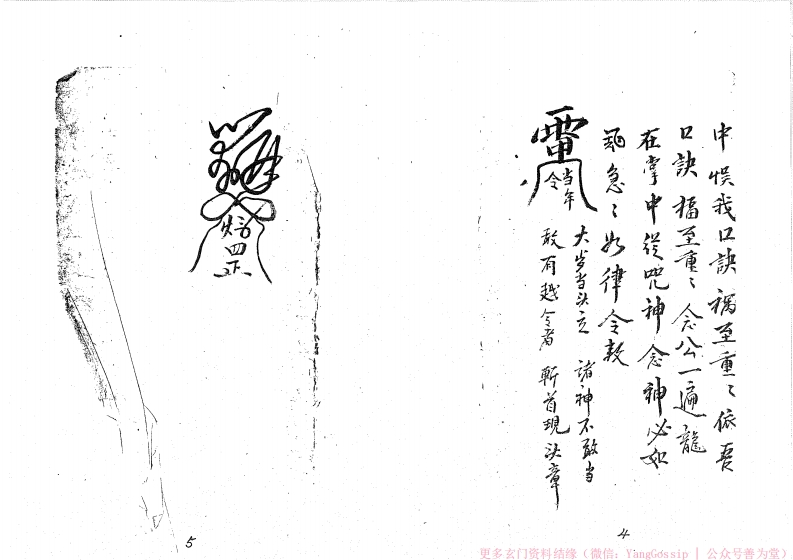 中悮我口訣禍至重〻依吾
口訣福至重〻念公一遍龍
在掌中從咒神念神必如
急〻如律令敕
雷
当年
令
大步当头立 諸神不敢当
敢有越令者 斬首現决章
四
正
5
4
更多玄门资料结缘（微信：YangGossip | 公众号善为堂）